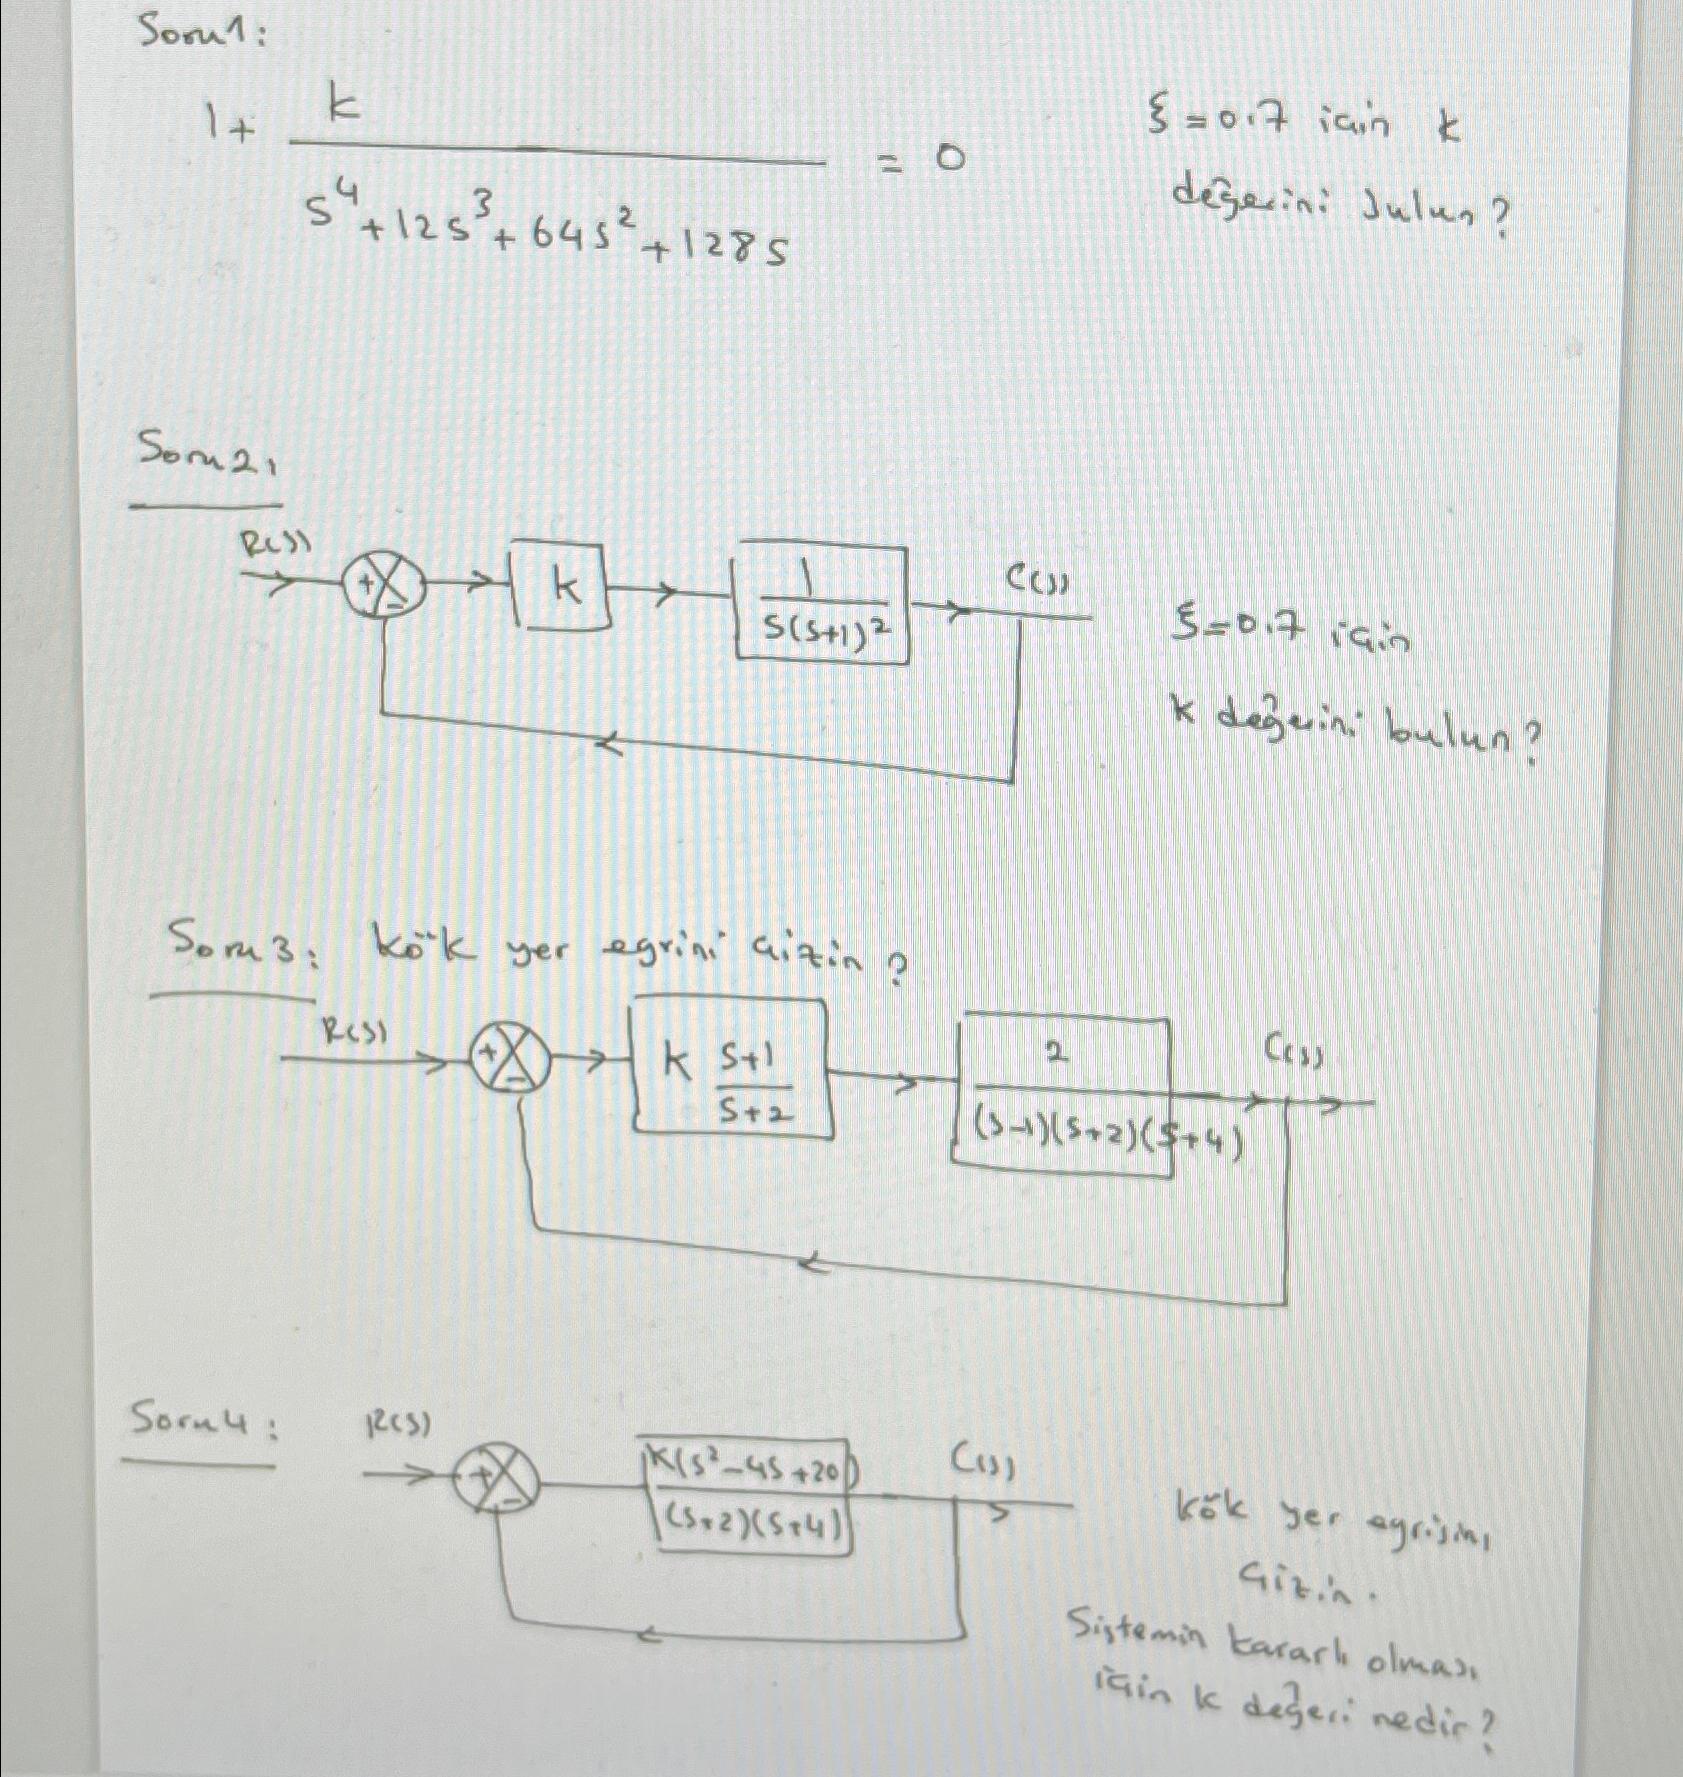 Soru1:
1 + k / s⁴+12s³+64s²+128s = 0
ξ=0.7 için k
değerini bulun?
Soru2:
R(s)
+
-
k
1 / s(s+1)²
C(s)
ξ=0.7 için
k değerini bulun?
Soru3: kök yer egrini çizin?
R(s)
+
-
k s+1 / s+2
2 / (s-1)(s+2)(s+4)
C(s)
Soru4:
R(s)
+
-
K(s²-4s+20) / (s+2)(s+4)
C(s)
kök yer egrisini
çizin.
Sistemin kararlı olması
için k değeri nedir?